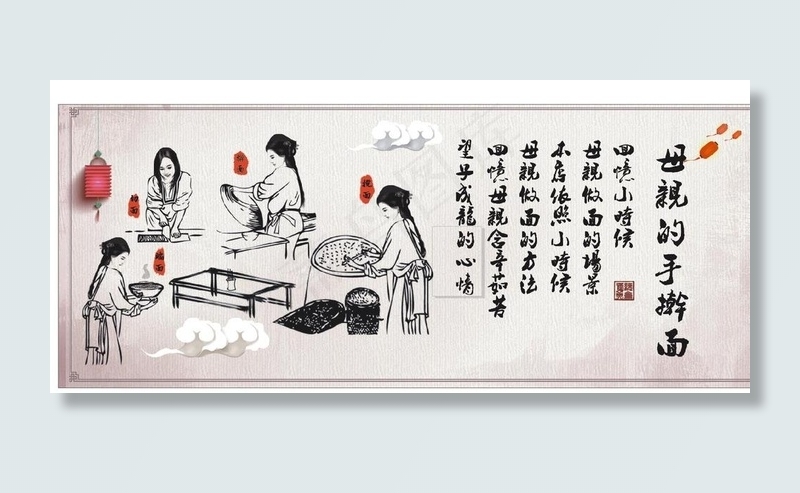 母親的手擀面
回憶小時候
母親做面的場景
本店依照小時候
母親做面的方法
回憶母親含辛茹苦
望子成龍的心情
端面